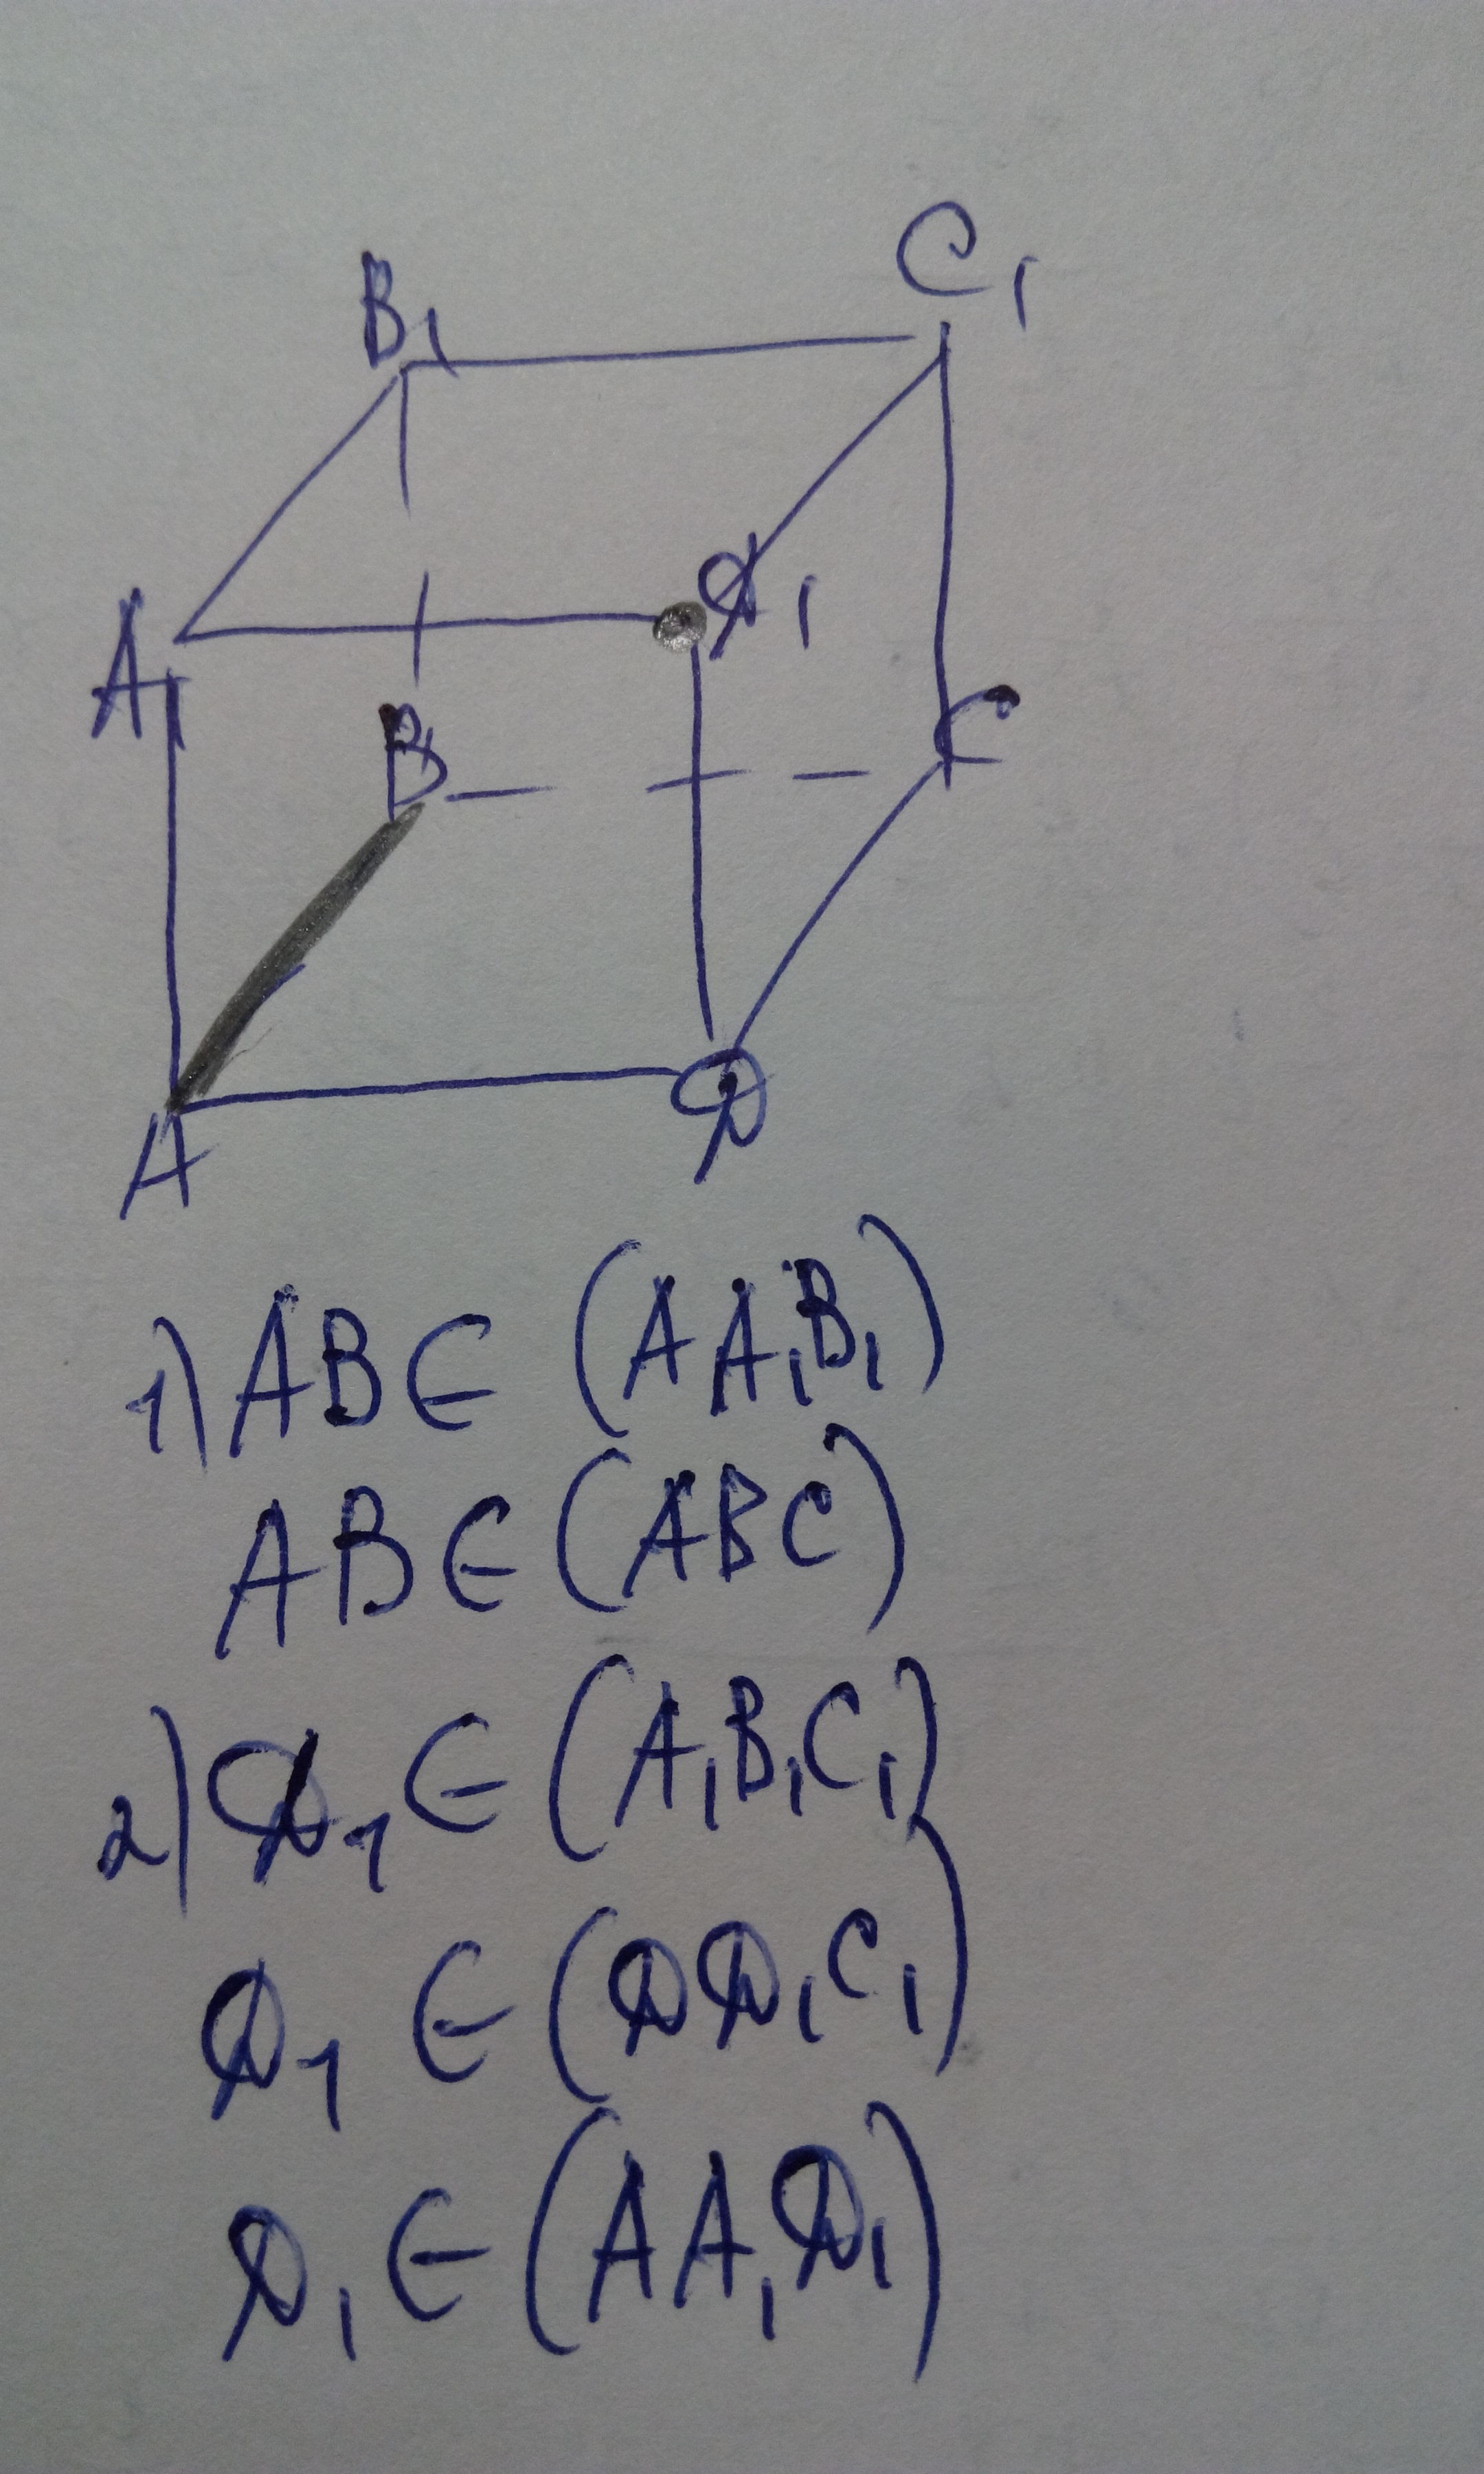 B₁ C₁
A₁ D₁
B C
A D
1) AB ∈ (AA₁B₁)
AB ∈ (ABC)
2) D₁ ∈ (A₁B₁C₁)
D₁ ∈ (DD₁C₁)
D₁ ∈ (AA₁D₁)